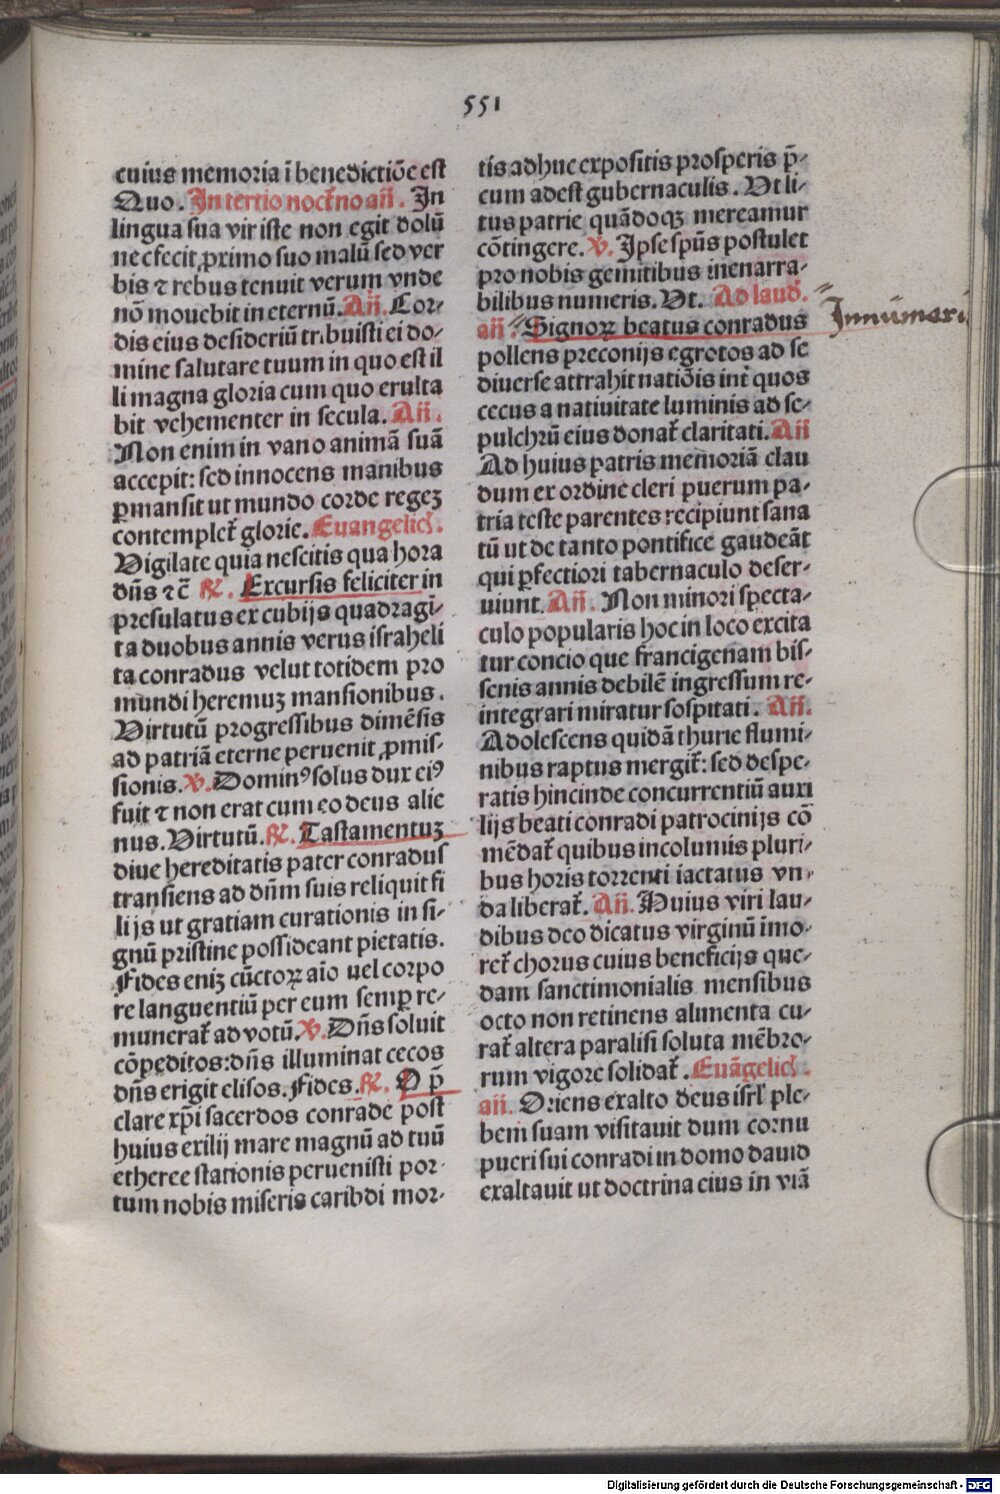 551
cuius memoria ī benedictiōe est
Quo. In tertio noct̄no añ. In
lingua sua vir iste non egit dolū
nec fecit ꝓximo suo malū sed ver
bis ⁊ rebus tenuit verum vnde
nō mouebit in eternū. Añ. Cor-
dis eius desideriū tribuisti ei do-
mine salutare tuum in quo est il
li magna gloria cum quo exulta
bit vehementer in secula. Añ.
Non enim in vano animā suā
accepit: sed innocens manibus
ꝑmansit ut mundo corde regeꝫ
contemplet̄ glorie. Euangelic̄.
Vigilate quia nescitis qua hora
dñs ⁊c̄ ℟. Excursis feliciter in
presulatus excubijs quadragī-
ta duobus annis verus israheli
ta conradus velut totidem pro
mundi heremuꝫ mansionibus.
Virtutū progressibus dimēsis
ad patriā eterne peruenit ꝓmis-
sionis. ℣. Dominꝰ solus dux eiꝰ
fuit ⁊ non erat cum eo deus alie
nus. Virtutū. ℟. Tastamentuꝫ
diue hereditatis pater conradus
transiens ad dñm suis reliquit fi
lijs ut gratiam curationis in si-
gnū pristine possideant pietatis.
Fides eniꝫ cūctoꝝ aīo uel corpo
re languentiū per eum semꝑ re-
munerat̄ ad votū. ℣. Dñs soluit
cōpeditos: dñs illuminat cecos
dñs erigit elisos. Fides. ℟. O p̄
clare xp̄i sacerdos conrade post
huius exilij mare magnū ad tuū
etheree stationis peruenisti por-
tum nobis miseris caribdi mor-
tis adhuc expositis prosperis p̄-
cum adest gubernaculis. Ut li-
tus patrie quādoqꝫ mereamur
cōtingere. ℣. Ipse spūs postulet
pro nobis gemitibus inenarra-
bilibus numeris. Ut. Ad laud̄.
añ. Signoꝝ beatus conradus
Innūmeri
pollens preconijs egrotos ad se
diuerse attrahit natiōis int̄ quos
cecus a natiuitate luminis ad se-
pulchrū eius donat̄ claritati. Añ
Ad huius patris memoriā clau
dum ex ordine cleri puerum pa-
tria teste parentes recipiunt sana
tū ut de tanto pontifice gaudeāt
qui ꝑfectiori tabernaculo deser-
uiunt. Añ. Non minori specta-
culo popularis hoc in loco excita
tur concio que francigenam bis-
senis annis debilē ingressum re-
integrari miratur sospitati. Añ.
Adolescens quidā thurie flumi-
nibus raptus mergit̄: sed despe-
ratis hincinde concurrentiū auxi
lijs beati conradi patrocinijs cō
mēdat̄ quibus incolumis pluri-
bus horis torrenti iactatus vn-
da liberat̄. Añ. Huius viri lau-
dibus deo dicatus virginū īmo-
ret̄ chorus cuius beneficijs que-
dam sanctimonialis mensibus
octo non retinens alimenta cu-
rat̄ altera paralisi soluta mēbro-
rum vigore solidat̄. Euāgelic̄.
añ. Oriens ex alto deus isrl̄ ple-
bem suam visitauit dum cornu
pueri sui conradi in domo dauid
exaltauit ut doctrina eius in viā
Digitalisierung gefördert durch die Deutsche Forschungsgemeinschaft - DFG